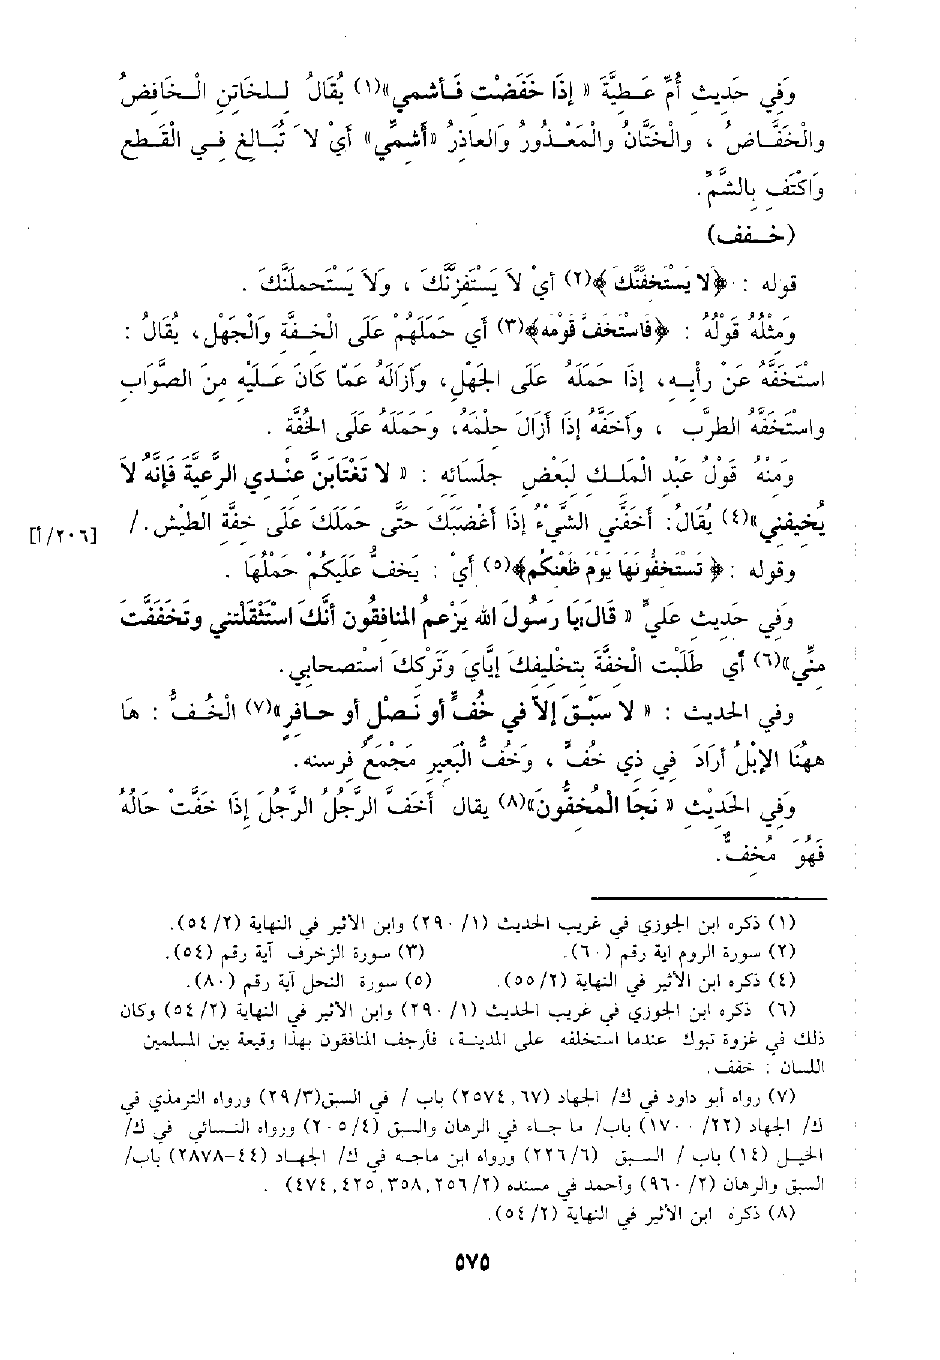 وَفِي حَدِيث أُمّ عَـطيَّةَ « إذَا خَفَضْت فَـأشمي»(١) يُقَالُ لـلخَاتن الْـخَافضُ
والْخَفَّـاضُ ، والْخَتَّانُ والْمَعْـذُورُ وَالعاذرُ «أَشمِّي» أيْ لاَ تُبَـالغ فـي الْقَطع
وَاكْتَف بِالشَّمِّ.
(خـفف)
قوله : ﴿لا يَسْتَخفَّنَّكَ﴾(٢) أيْ لاَ يَسْتَفزنَّكَ ، ولاَ يَسْتَحملَنَّكَ .
وَمثْلُهُ قَوْلُهُ : ﴿فَاسْتَخَفَّ قَومه﴾(٣) أي حَمَلَهُمْ عَلَى الْخفَّة والْجَهْل، يُقَالُ :
استَخَفَّهُ عَنْ رأيـه، إذَا حَمَلَهُ عَلَى الجَهْل، وَأزَالَهُ عَمَّا كَانَ عَـلَيْه منَ الصَّوَاب
واسْتَخَفَّهُ الطرَّب ، وأخَفَّهُ إذَا أزَالَ حلْمَهُ، وَحَمَلَهُ عَلَى الخفَّة .
وَمنْهُ قَوْلُ عَبْد الْمَلـك لبَعْض جلَسَائه : « لا تَغْتَابَنَّ عنْدي الرعيَّة فَإنَّهُ لاَ
يُخيفني»(٤) يُقَالُ: أخَفَّني الشَّيْءُ إذَا أغْضَبَكَ حَتَّى حَمَلَكَ عَلَى خفَّة الطَيْش. /
[٢٠٦/أ]
وقوله : ﴿ تَسْتَخفُّونَهَا يَوْمَ ظَعْنكُم﴾(٥) أيْ : يَخفُّ عَلَيكُمْ حَمْلُهَا .
وَفي حَديث عَليٍّ « قَالَ:يَا رَسُولَ الله يَزْعم المنَافقُون أَنَّكَ اسْتَثْقَلْتَني وتَخَفَّفْتَ
منِّي»(٦) أي طَلَبْت الْخفَّة بتَخْليفكَ إيَّايَ وَتَرْككَ اسْتصحابي.
وفي الحَديث : « لا سَبْقَ إلاَّ في خُفٍّ أو نَـصْل أو حـافر»(٧) الْخُـفُّ : هَا
هَهُنَا الإبلُ أرَادَ في ذي خُفٍّ ، وَخُفُّ الْبَعير مَجْمَعُ فرسنه.
وَفي الحَديْث « نَجَا الْمُخفُّونَ»(٨) يقال أخَفَّ الرَّجُلُ الرَّجُلَ إذَا خَفَّتْ حَالُهُ
فَهُوَ مُخفٌّ.
(١) ذكره ابن الجوزي في غريب الحديث (٢٩٠/١) وابن الأثير في النهاية (٥٤/٢).
(٢) سورة الروم آية رقم (٦٠). (٣) سورة الزخرف آية رقم (٥٤).
(٤) ذكره ابن الأثير في النهاية (٥٥/٢). (٥) سورة النحل آية رقم (٨٠).
(٦) ذكره ابن الجوزي في غريب الحديث (٢٩٠/١) وابن الأثير في النهاية (٥٤/٢) وكان
ذلك في غزوة تبوك عندما استخلفه على المدينـة، فأرجف المنافقون بهذا وقيعة بين المسلمين
اللسان : خفف.
(٧) رواه أبو داود في ك/ الجهاد (٢٥٧٤,٦٧) باب / في السبق(٢٩/٣) ورواه الترمذي في
ك/ الجهاد (١٧٠٠/٢٢) باب/ ما جـاء في الرهان والسبق (٢٠٥/٤) ورواه النـسائي في ك/
الخيـل (١٤) باب / السـبق (٢٢٦/٦) ورواه ابن ماجـه في ك/ الجهـاد (٤٤-٢٨٧٨) باب/
السبق والرهان (٩٦٠/٢) وأحمد في مسنده (٤٧٤,٤٢٥,٣٥٨,٢٥٦/٢) .
(٨) ذكره ابن الأثير في النهاية (٥٤/٢).
٥٧٥